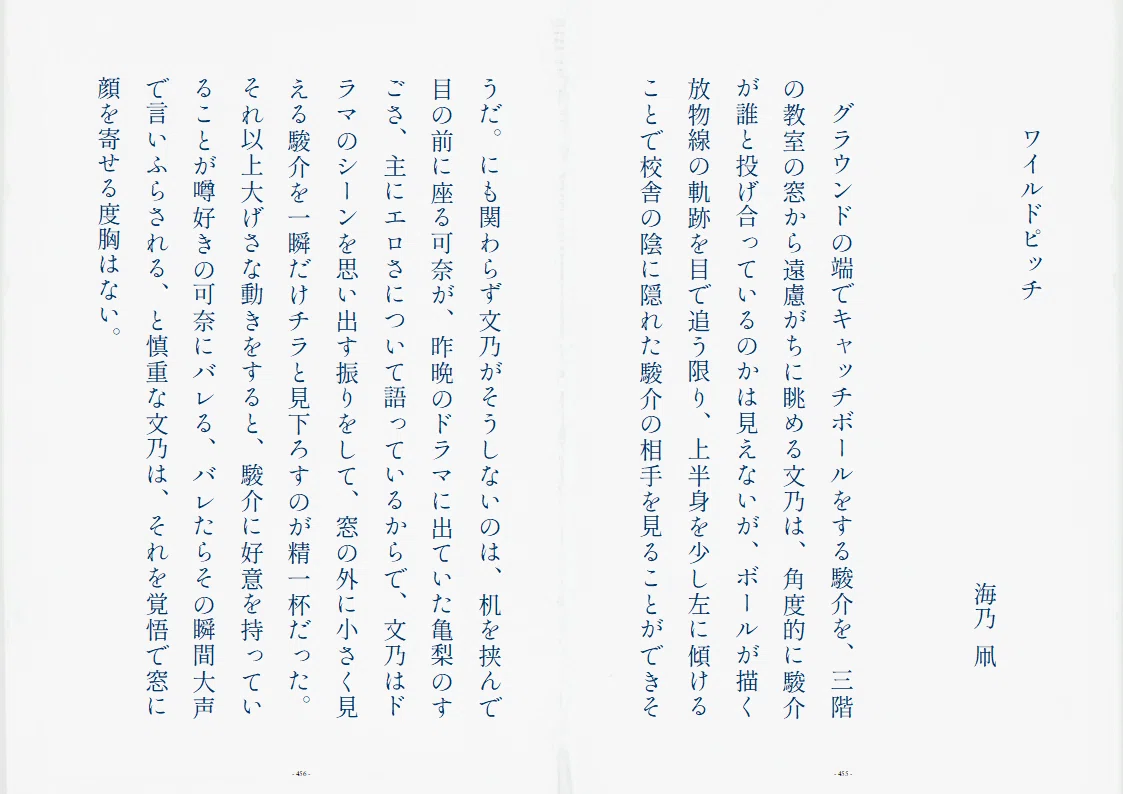 ワイルドピッチ
海乃 凪
グラウンドの端でキャッチボールをする駿介を、三階
の教室の窓から遠慮がちに眺める文乃は、角度的に駿介
が誰と投げ合っているのかは見えないが、ボールが描く
放物線の軌跡を目で追う限り、上半身を少し左に傾ける
ことで校舎の陰に隠れた駿介の相手を見ることができそ
- 455 -
うだ。にも関わらず文乃がそうしないのは、机を挟んで
目の前に座る可奈が、昨晩のドラマに出ていた亀梨のす
ごさ、主にエロさについて語っているからで、文乃はド
ラマのシーンを思い出す振りをして、窓の外に小さく見
える駿介を一瞬だけチラと見下ろすのが精一杯だった。
それ以上大げさな動きをすると、駿介に好意を持ってい
ることが噂好きの可奈にバレる、バレたらその瞬間大声
で言いふらされる、と慎重な文乃は、それを覚悟で窓に
顔を寄せる度胸はない。
- 456 -